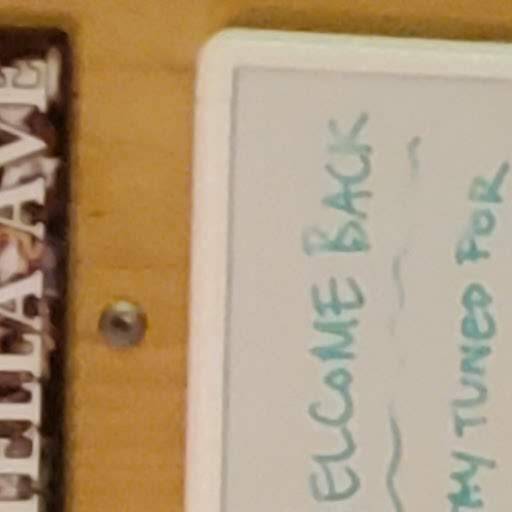 TELLA AVE
ELCOME BACK
AY TUNED FOR